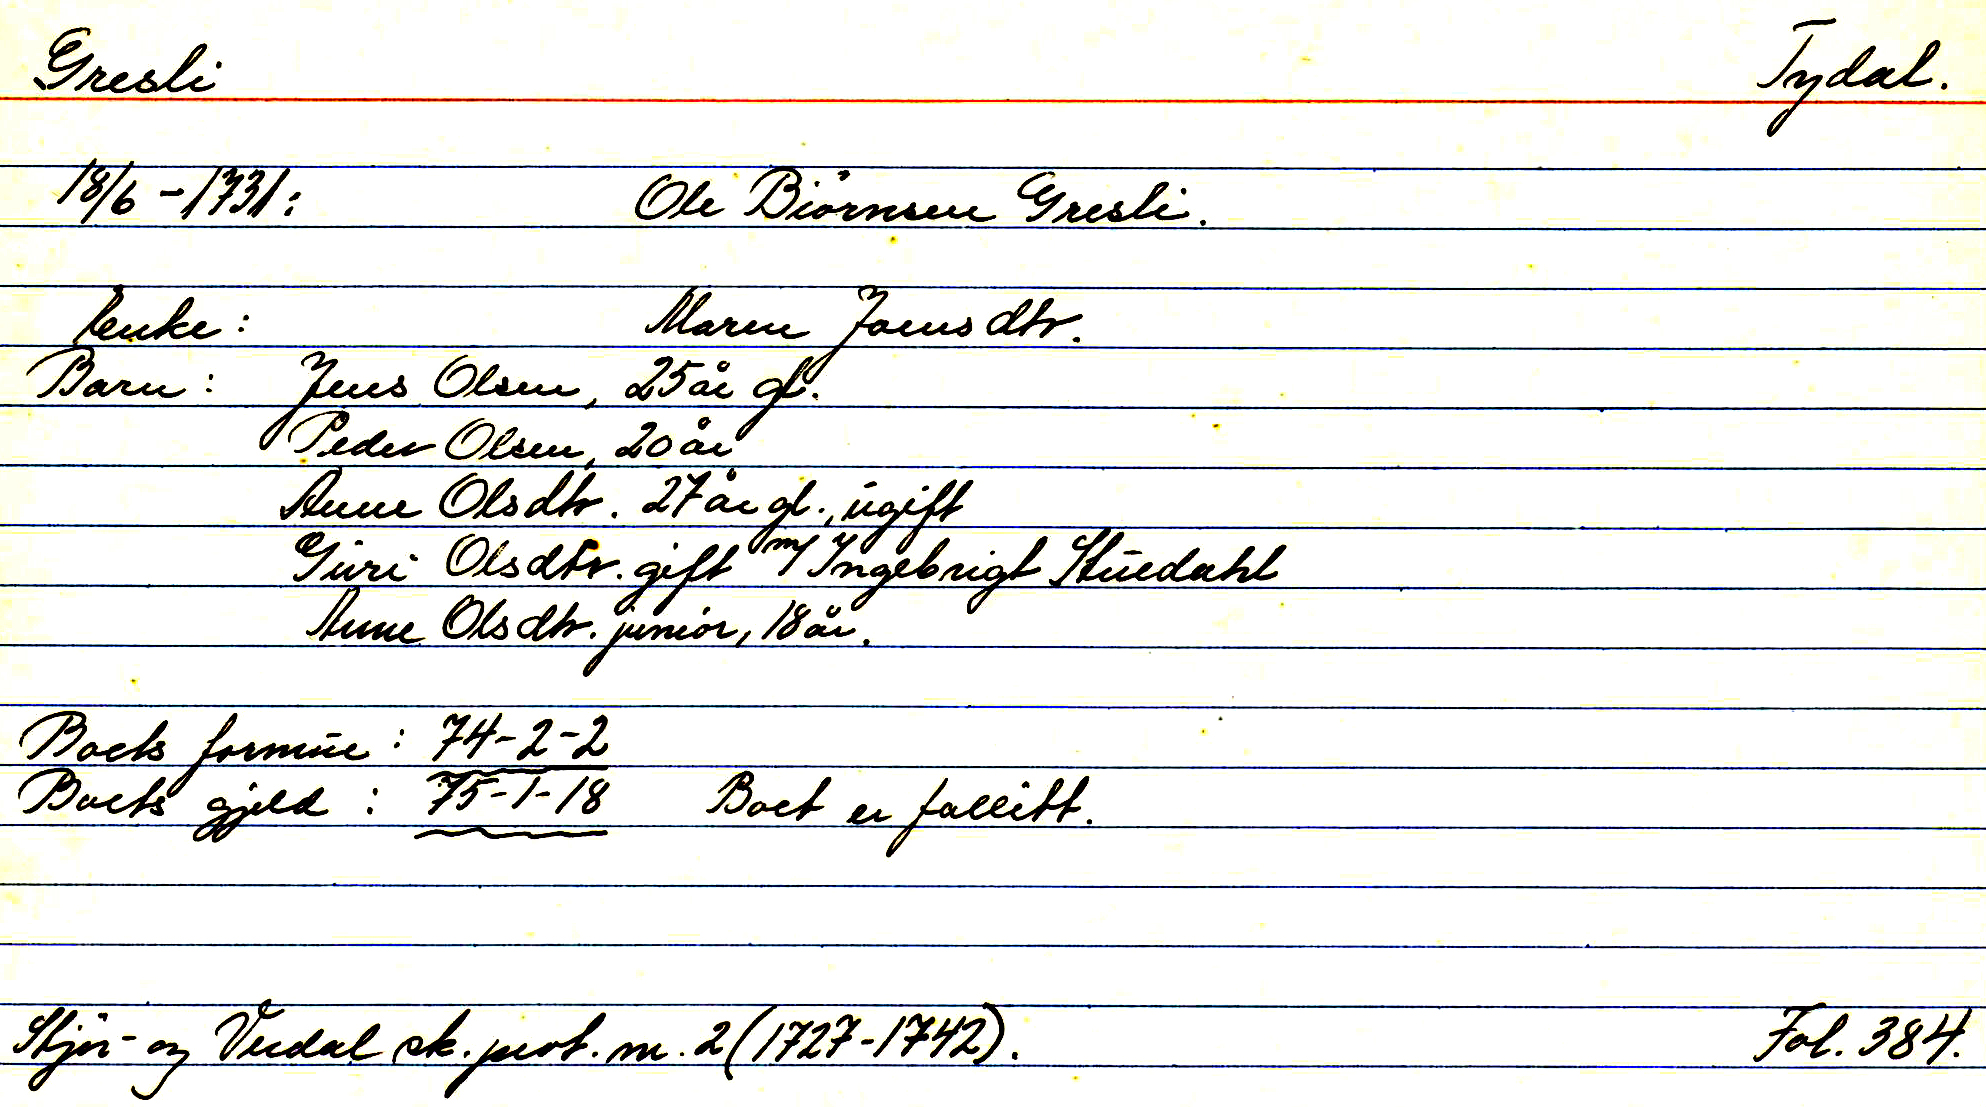 Gresli Tydal.
18/6 - 1731: Ole Biörnsen Gresli.
Enke: Maren Joensdtr.
Barn: Jens Olsen, 25 år gl.
Peder Olsen, 20 år
Anne Olsdtr. 27 år gl., ugift
Guri Olsdtr. gift m/ Ingebrigt Stuedahl
Anne Olsdtr. junior, 18 år.
Boets formue: 74-2-2
Boets gjeld: 75-1-18 Boet er fallitt.
Stjør- og Verdal sk. prot. nr. 2 (1727-1742). Fol. 384.